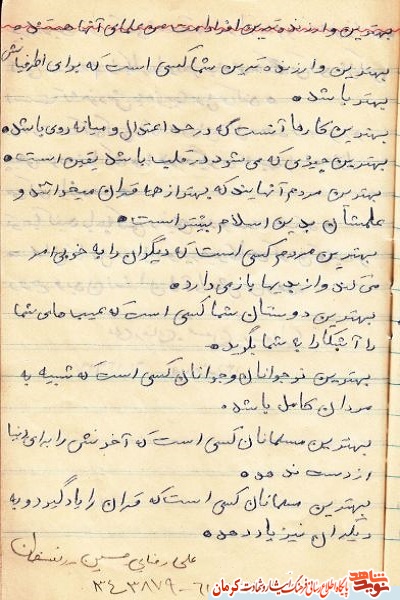 بهترین و ارزنده‌ترین افراد امت من علمای آنها هستند
بهترین و ارزنده ترین شما کسی است که برای اطرافیانش
بهتر باشد.
بهترین کارها آنست که در حد اعتدال و میانه روی باشد.
بهترین چیزی که می شود در قلب باشد یقین است.
بهترین مردم آنهایند که بهتر از همه قرآن میخوانند و
علمشان بدین اسلام بیشتر است.
بهترین مردم کسی است که دیگران را به خوبی امر
می کند و از بدیها باز می دارد.
بهترین دوستان شما کسی است که عیب های شما
را آشکارا به شما بگوید.
بهترین نوجوانان و جوانان کسی است که شبیه به
مردان کامل باشد.
بهترین مسلمانان کسی است که آخرتش را برای دنیا
از دست ندهد.
بهترین مسلمانان کسی است که قرآن را یاد گیرد و به
دیگران نیز یاد دهد.
علی رضایی حسین
پایگاه اطلاع رسانی فرهنگ ایثار و شهادت کرمان
نوید شاهد